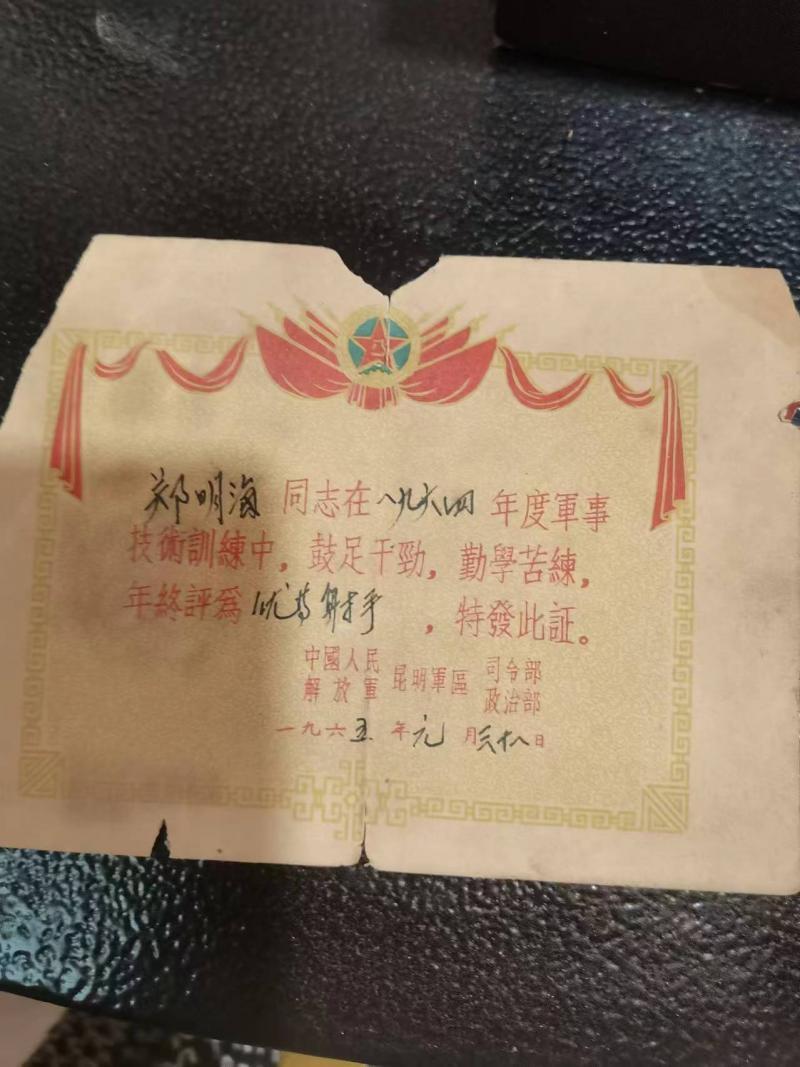 郑明海 同志在 一九六四 年度軍事
技術訓練中，鼓足干勁，勤學苦練，
年終評爲 优等射手 ，特發此証。
中國人民解放軍 昆明軍區 司令部 政治部
一九六五年元月二十八日